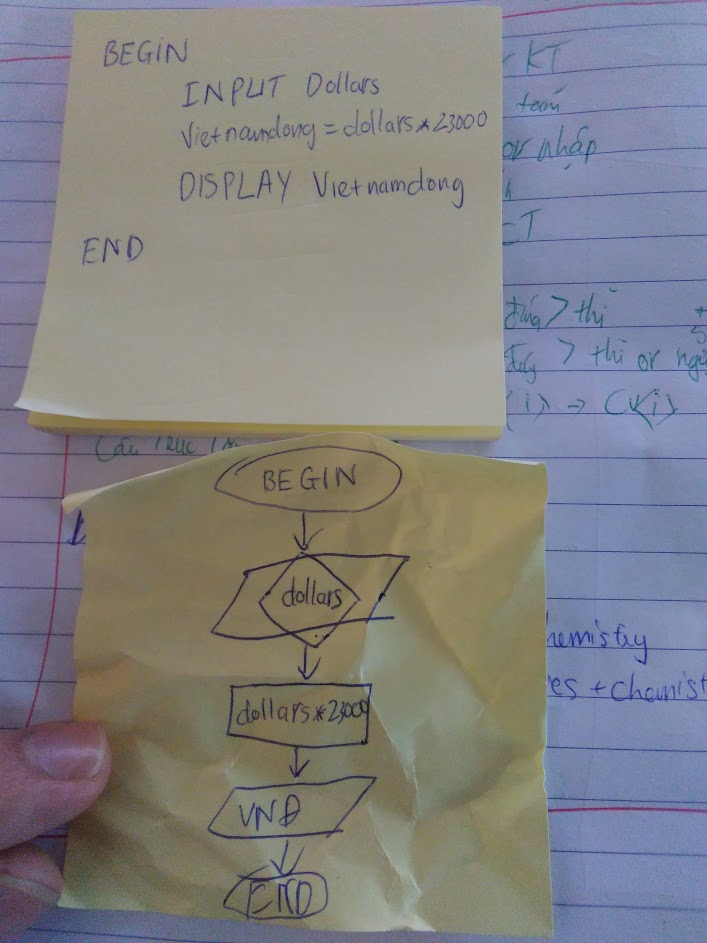 BEGIN
INPUT Dollars
Vietnamdong = dollars*23000
DISPLAY Vietnamdong
END
KT
toán
or nhập
CT
đúng > thì
đúng > thì or
(i) →
BEGIN
dollars
dollars*23000
VNĐ
END
hemistry
es + chemist